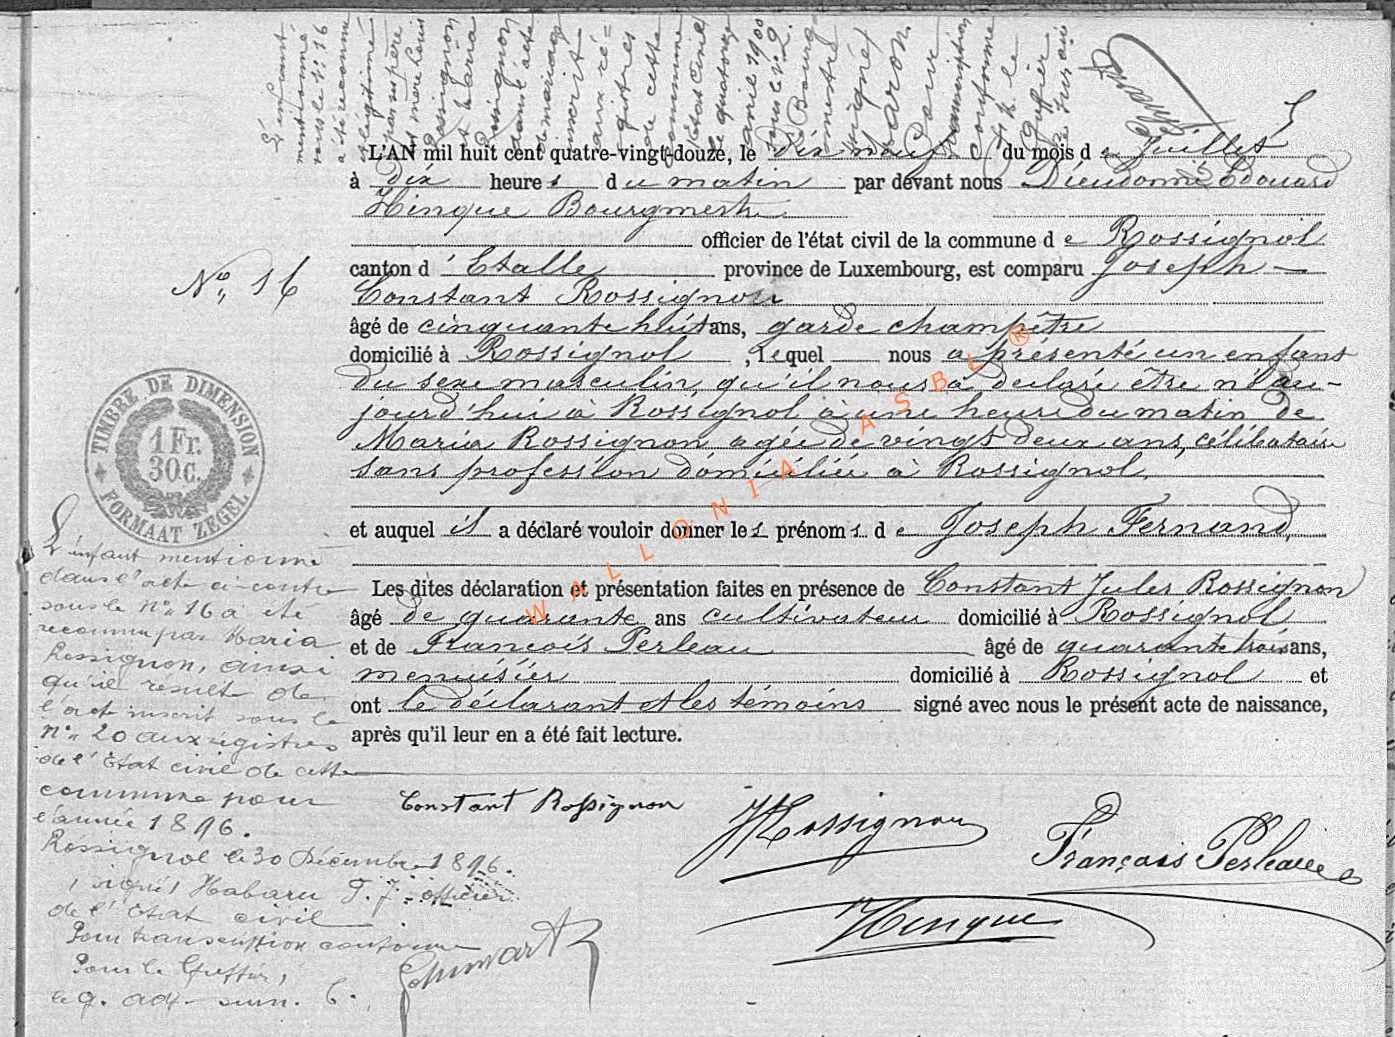 L'enfant
mentionné
sous le n° 16
a été reconnu
et légitimé
par son père
et mère Louis
Rossignon
et Maria
Rossignon
dans l'acte
de mariage
inscrit
aux ré=
gistres
de cette
commune
l'état civil
le quatorze
avril 1900
sous le n° 9
Le Bourg-
mestre
(signé)
Baron.
Pour
transcription
conforme
le
Greffier
L'AN mil huit cent quatre-vingt-douze, le dix neuf du mois de Juillet
à dix heures du matin par devant nous Dieudonné Edouard
Hinque Bourgmestre
officier de l'état civil de la commune de Rossignol
canton d'Etalle province de Luxembourg, est comparu Joseph
N° 16
Constant Rossignon
âgé de cinquante huit ans, garde champêtre
domicilié à Rossignol, lequel nous a présenté un enfant
du sexe masculin, qu'il nous a declaré être né au-
jourd'hui à Rossignol à une heure du matin de
Maria Rossignon agée de vingt deux ans, célibataire
sans profession domiciliée à Rossignol,
et auquel il a déclaré vouloir donner les prénoms de Joseph Fernand,
Les dites déclaration et présentation faites en présence de Constant Jules Rossignon
âgé de quarante ans cultivateur domicilié à Rossignol
et de François Perleau âgé de quarante trois ans,
menuisier domicilié à Rossignol et
ont le déclarant et les témoins signé avec nous le présent acte de naissance,
après qu'il leur en a été fait lecture.
Constant Rossignon
JRossignon
François Perleau
Hinque
TIMBRE DE DIMENSION
1 Fr.
30c.
FORMAAT ZEGEL
L'enfant mentionné
dans l'acte ci-contre
sous le n° 16 a été
reconnu par Maria
Rossignon, ainsi
qu'il résulte de
l'acte inscrit sous le
n° 20 aux régistres
de l'Etat civil de cette
commune pour
l'année 1896.
Rossignol le 30 Décembre 1896.
(signé) Habaru f. f. officier
de l'Etat civil
Pour transcription conforme
Pour le Greffier,
le g. adj. surn. 
WALLONIA ASBL ®